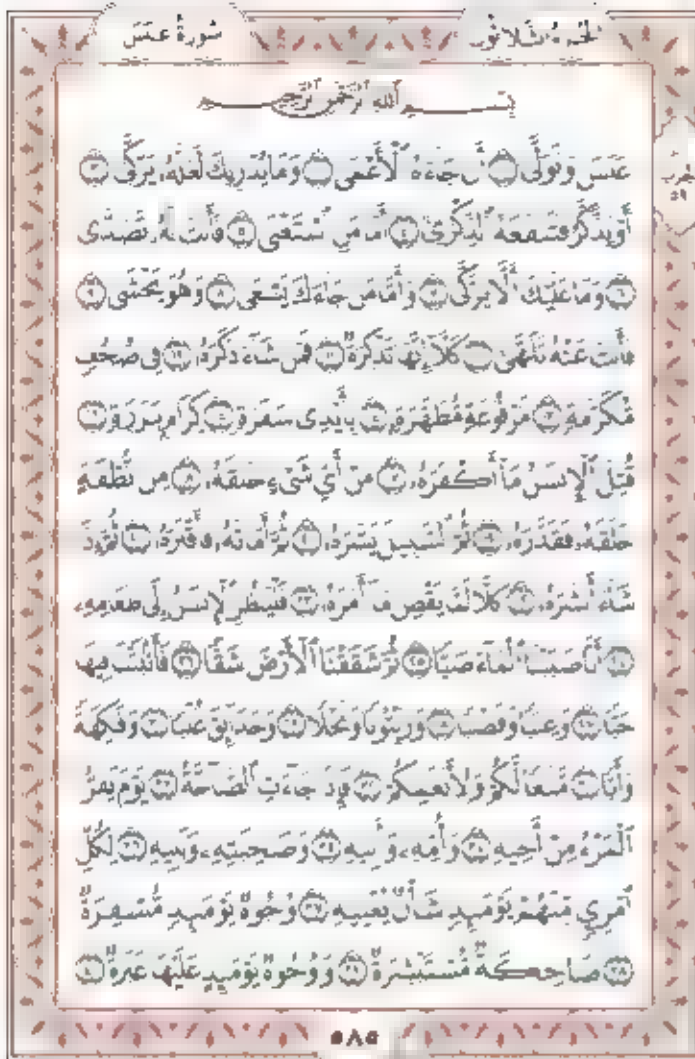 سُورَةُ عَبَسَ
الجزء الثلاثون
بِسْمِ ٱللَّهِ ٱلرَّحْمَٰنِ ٱلرَّحِيمِ
عَبَسَ وَتَوَلَّىٰٓ ١ أَن جَآءَهُ ٱلْأَعْمَىٰ ٢ وَمَا يُدْرِيكَ لَعَلَّهُۥ يَزَّكَّىٰٓ ٣
أَوْ يَذَّكَّرُ فَتَنفَعَهُ ٱلذِّكْرَىٰٓ ٤ أَمَّا مَنِ ٱسْتَغْنَىٰ ٥ فَأَنتَ لَهُۥ تَصَدَّىٰ
٦ وَمَا عَلَيْكَ أَلَّا يَزَّكَّىٰ ٧ وَأَمَّا مَن جَآءَكَ يَسْعَىٰ ٨ وَهُوَ يَخْشَىٰ ٩
فَأَنتَ عَنْهُ تَلَهَّىٰ ١٠ كَلَّآ إِنَّهَا تَذْكِرَةٌ ١١ فَمَن شَآءَ ذَكَرَهُۥ ١٢ فِى صُحُفٍ
مُّكَرَّمَةٍ ١٣ مَّرْفُوعَةٍ مُّطَهَّرَةٍۭ ١٤ بِأَيْدِى سَفَرَةٍ ١٥ كِرَامٍۭ بَرَرَةٍ ١٦
قُتِلَ ٱلْإِنسَٰنُ مَآ أَكْفَرَهُۥ ١٧ مِنْ أَىِّ شَىْءٍ خَلَقَهُۥ ١٨ مِن نُّطْفَةٍ
خَلَقَهُۥ فَقَدَّرَهُۥ ١٩ ثُمَّ ٱلسَّبِيلَ يَسَّرَهُۥ ٢٠ ثُمَّ أَمَاتَهُۥ فَأَقْبَرَهُۥ ٢١ ثُمَّ إِذَا
شَآءَ أَنشَرَهُۥ ٢٢ كَلَّا لَمَّا يَقْضِ مَآ أَمَرَهُۥ ٢٣ فَلْيَنظُرِ ٱلْإِنسَٰنُ إِلَىٰ طَعَامِهِۦٓ
٢٤ أَنَّا صَبَبْنَا ٱلْمَآءَ صَبًّا ٢٥ ثُمَّ شَقَقْنَا ٱلْأَرْضَ شَقًّا ٢٦ فَأَنۢبَتْنَا فِيهَا
حَبًّا ٢٧ وَعِنَبًا وَقَضْبًا ٢٨ وَزَيْتُونًا وَنَخْلًا ٢٩ وَحَدَآئِقَ غُلْبًا ٣٠ وَفَٰكِهَةً
وَأَبًّا ٣١ مَّتَٰعًا لَّكُمْ وَلِأَنْعَٰمِكُمْ ٣٢ فَإِذَا جَآءَتِ ٱلصَّآخَّةُ ٣٣ يَوْمَ يَفِرُّ
ٱلْمَرْءُ مِنْ أَخِيهِ ٣٤ وَأُمِّهِۦ وَأَبِيهِ ٣٥ وَصَٰحِبَتِهِۦ وَبَنِيهِ ٣٦ لِكُلِّ
ٱمْرِئٍ مِّنْهُمْ يَوْمَئِذٍ شَأْنٌ يُغْنِيهِ ٣٧ وُجُوهٌ يَوْمَئِذٍ مُّسْفِرَةٌ
٣٨ ضَاحِكَةٌ مُّسْتَبْشِرَةٌ ٣٩ وَوُجُوهٌ يَوْمَئِذٍ عَلَيْهَا غَبَرَةٌ ٤٠
٥٨٥